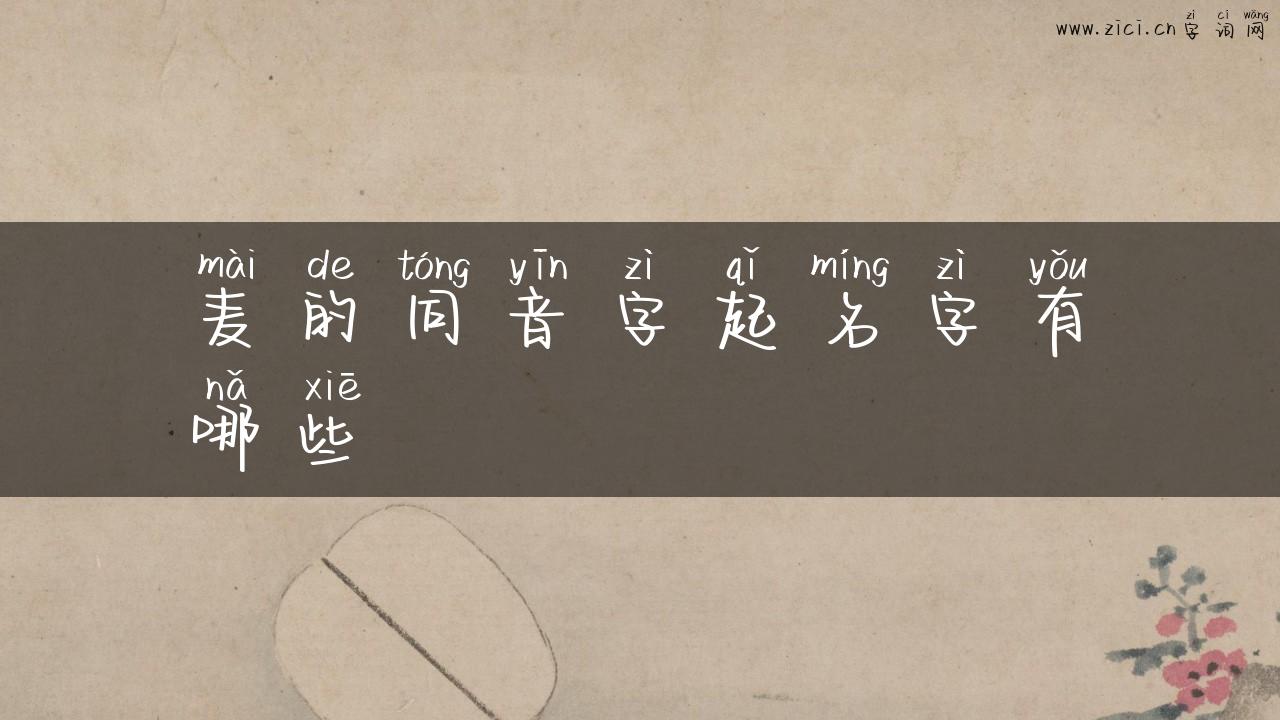 zì cí wǎng
www.zici.cn字词网
mài de tóng yīn zì qǐ míng zì yǒu
麦的同音字起名字有
nǎ xiē
哪些